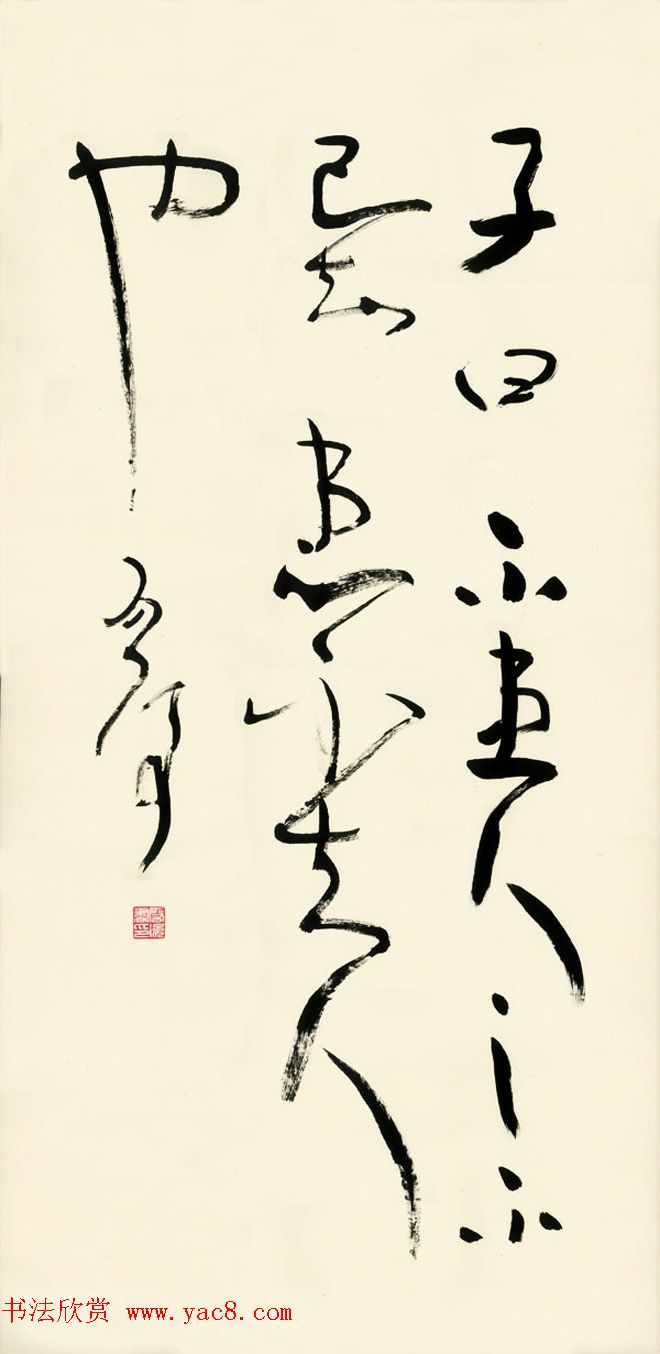 子曰不患人之不
己知患不知人
也
书法欣赏 www.yac8.com